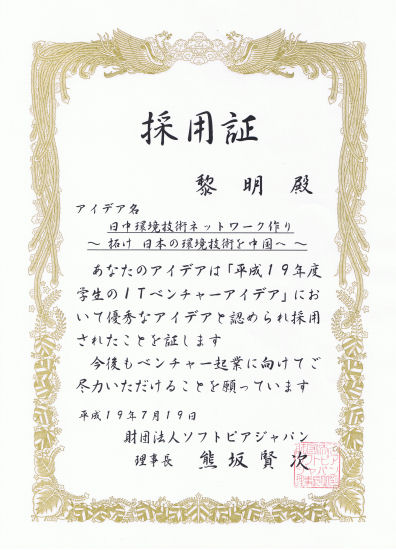 採用証
黎 明 殿
アイデア名
日中環境技術ネットワーク作り
～ 拓け 日本の環境技術を中国へ ～
あなたのアイデアは「平成19年度
学生のITベンチャーアイデア」にお
いて優秀なアイデアと認められ採用
されたことを証します
今後もベンチャー起業に向けてご
尽力いただけることを願っています
平成19年7月19日
財団法人ソフトピアジャパン
理事長 熊坂賢次